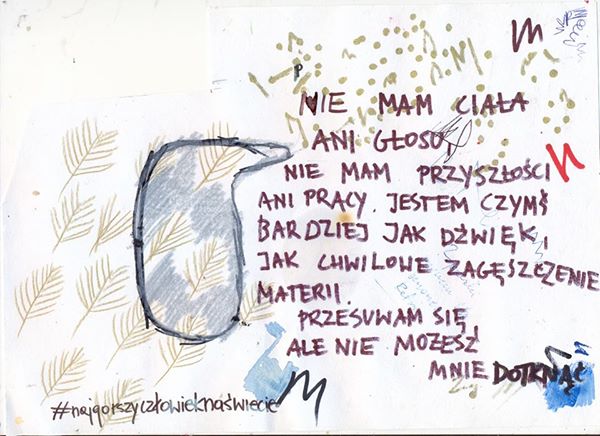 NIE MAM CIAŁA
ANI GŁOSU,
NIE MAM PRZYSZŁOŚCI
ANI PRACY. JESTEM CZYMŚ
BARDZIEJ JAK DŹWIĘK,
JAK CHWILOWE ZAGĘSZCZENIE
MATERII.
PRZESUWAM SIĘ,
ALE NIE MOŻESZ
MNIE DOTKNĄĆ
#najgorszyczłowieknaświecie